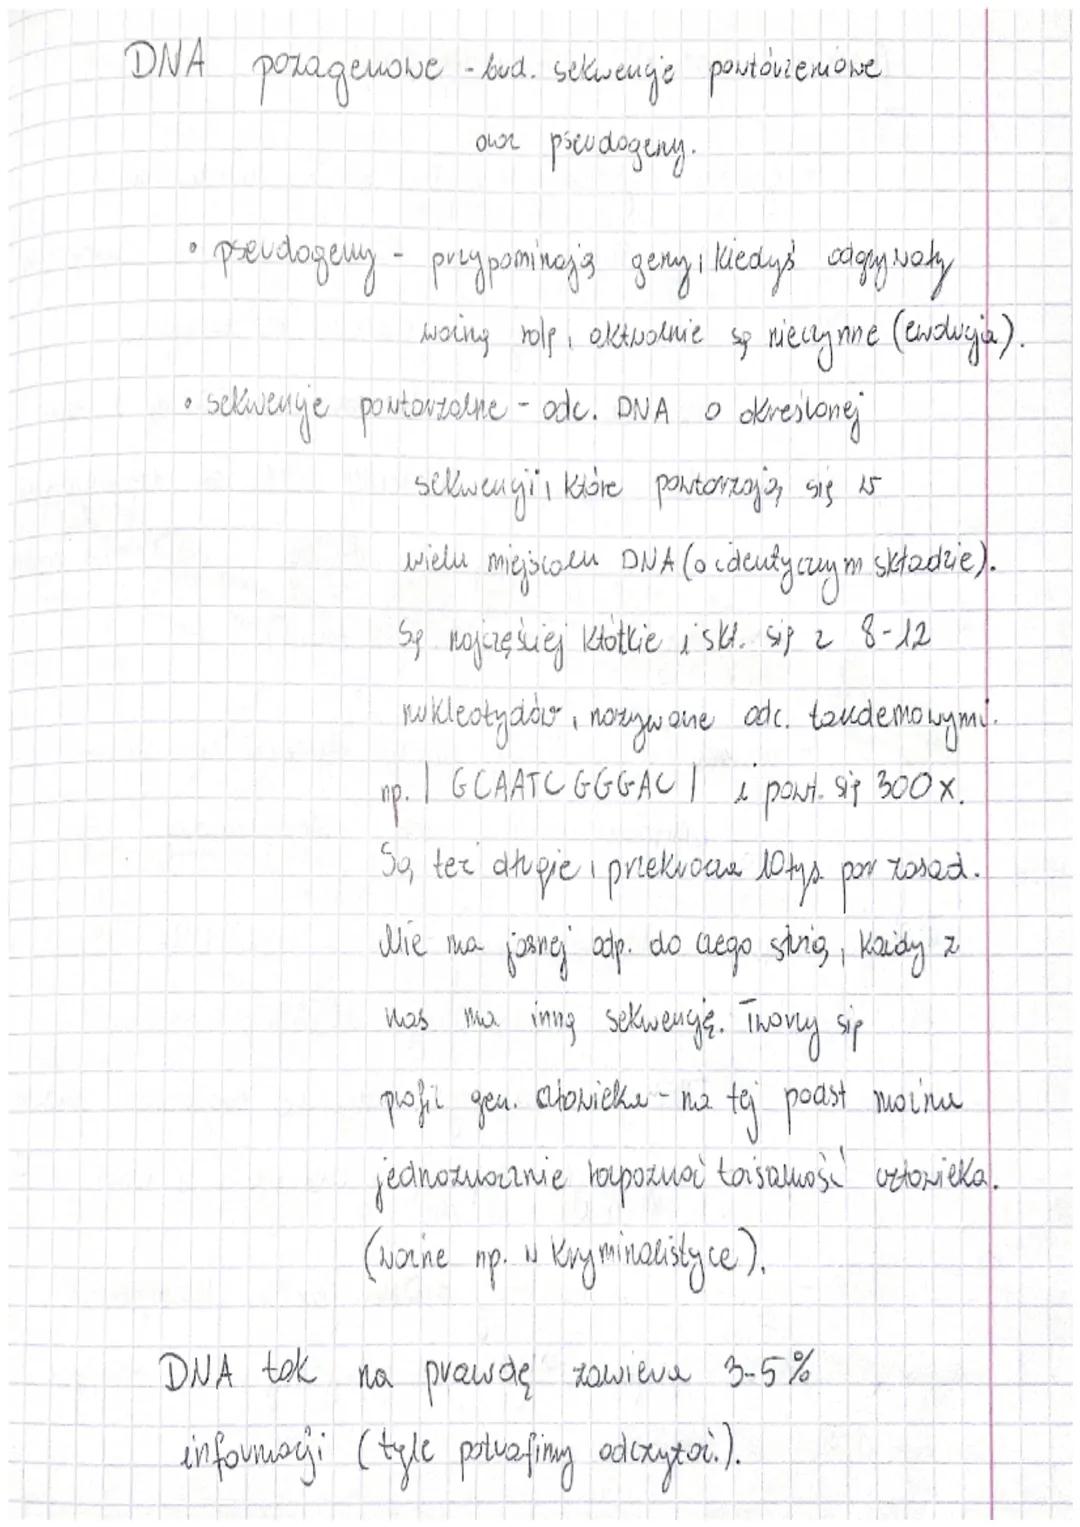 DNA pozagenowe - bud. sekwencje powtórzeniowe
oraz pseudogeny.
• pseudogeny - przypominają geny, kiedyś odgrywały
ważną rolę, aktualnie są nieczynne (ewolucja).
• sekwencje powtarzalne - odc. DNA o określonej
sekwencji, które powtarzają się w
wielu miejscach DNA (o identycznym składzie).
Są najczęściej krótkie i skł. się z 8-12
nukleotydów, nazywane odc. tandemowymi.
np. | GCAATCGGGAC | i powt. się 300x.
Są też długie, przekracza 10 tys. par zasad.
Nie ma jasnej odp. do czego służą, każdy z
nas ma inną sekwencję. Tworzy się
profil gen. człowieka - na tej podst można
jednoznacznie rozpoznać tożsamość człowieka.
(ważne np. w kryminalistyce).
DNA tak na prawdę zawiera 3-5%
informacji (tyle potrafimy odczytać.).